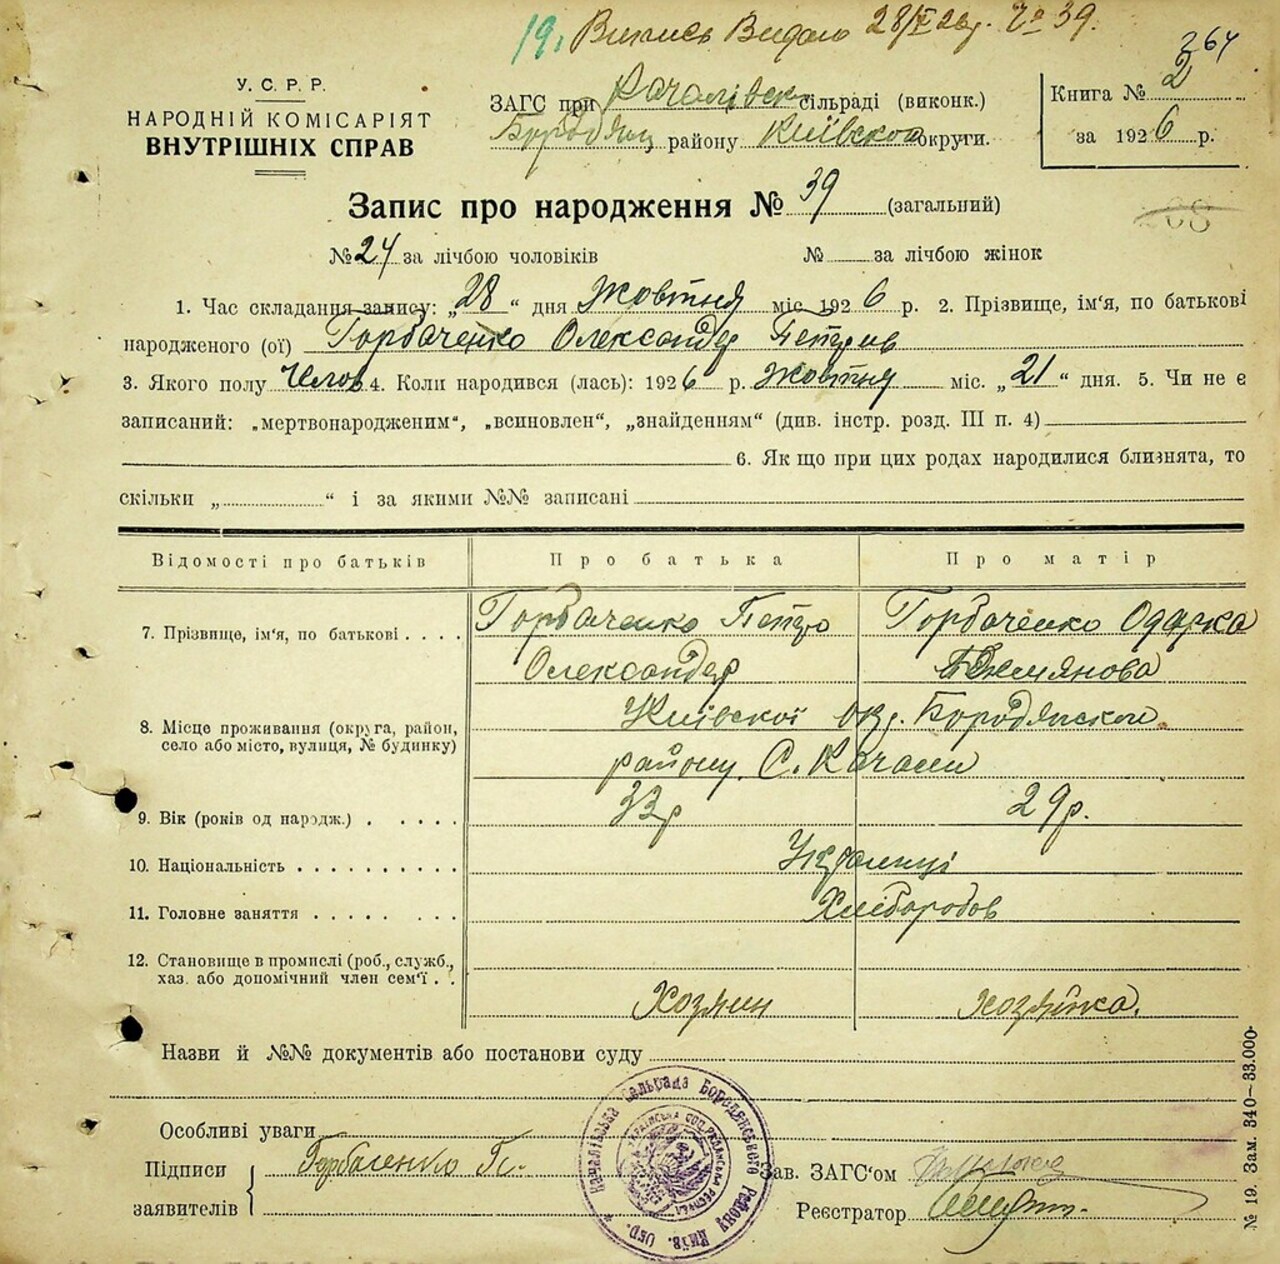 19, Випись Видано 28/X 26р. № 39.
264
У. С. Р. Р.
НАРОДНІЙ КОМІСАРІЯТ
ВНУТРІШНІХ СПРАВ
ЗАГС при Качалівск сільраді (виконк.)
Бородянц району Київской округи.
Книга № 2
за 1926 р.
Запис про народження № 39 (загальний)
№ 24 за лічбою чоловіків № за лічбою жінок
1. Час складання запису: „28“ дня Жовтня міс. 1926 р. 2. Прізвище, ім'я, по батькові
народженого (ої) Горбаченко Олександер Петров
3. Якого полу Челов 4. Коли народився (лась): 1926 р. Жовтня міс. „21“ дня. 5. Чи не є
записаний: „мертвонародженим“, „всиновлен“, „знайденням“ (див. інстр. розд. III п. 4)
6. Як що при цих родах народилися близнята, то
скільки „ “ і за якими №№ записані
Відомості про батьків Про батька Про матір
7. Прізвище, ім'я, по батькові . . . . Горбаченко Петро Горбаченко Одарка
Олександер Демянова
8. Місце проживання (округа, район,
село або місто, вулиця, № будинку)
Київскої окр. Бородянской
району. С. Качали
9. Вік (років од народж.) . . . . . 33р 29р.
10. Національність . . . . . . . . . . Українці
11. Головне заняття . . . . . . . . Хліборобов
12. Становище в промислі (роб., служб.,
хаз. або допомічний член сем'ї . .
Хозяин хозяйка.
Назви й №№ документів або постанови суду
Особливі уваги
Підписи
заявителів
Горбаченко П.
Зав. ЗАГС'ом
Реєстратор
Качалівська Сельрада Бородянського Району Київ. Окр.
УКРАЇНСЬКА СОЦ. РАДЯНСЬКА РЕСПУБ
№ 19. Зам. 340—33.000.